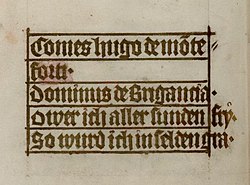 Comes hugo de mõte
forti·
Dominus de Brigancia·
O wer ich aller sunten fry·
So wurd ich in selten gra·